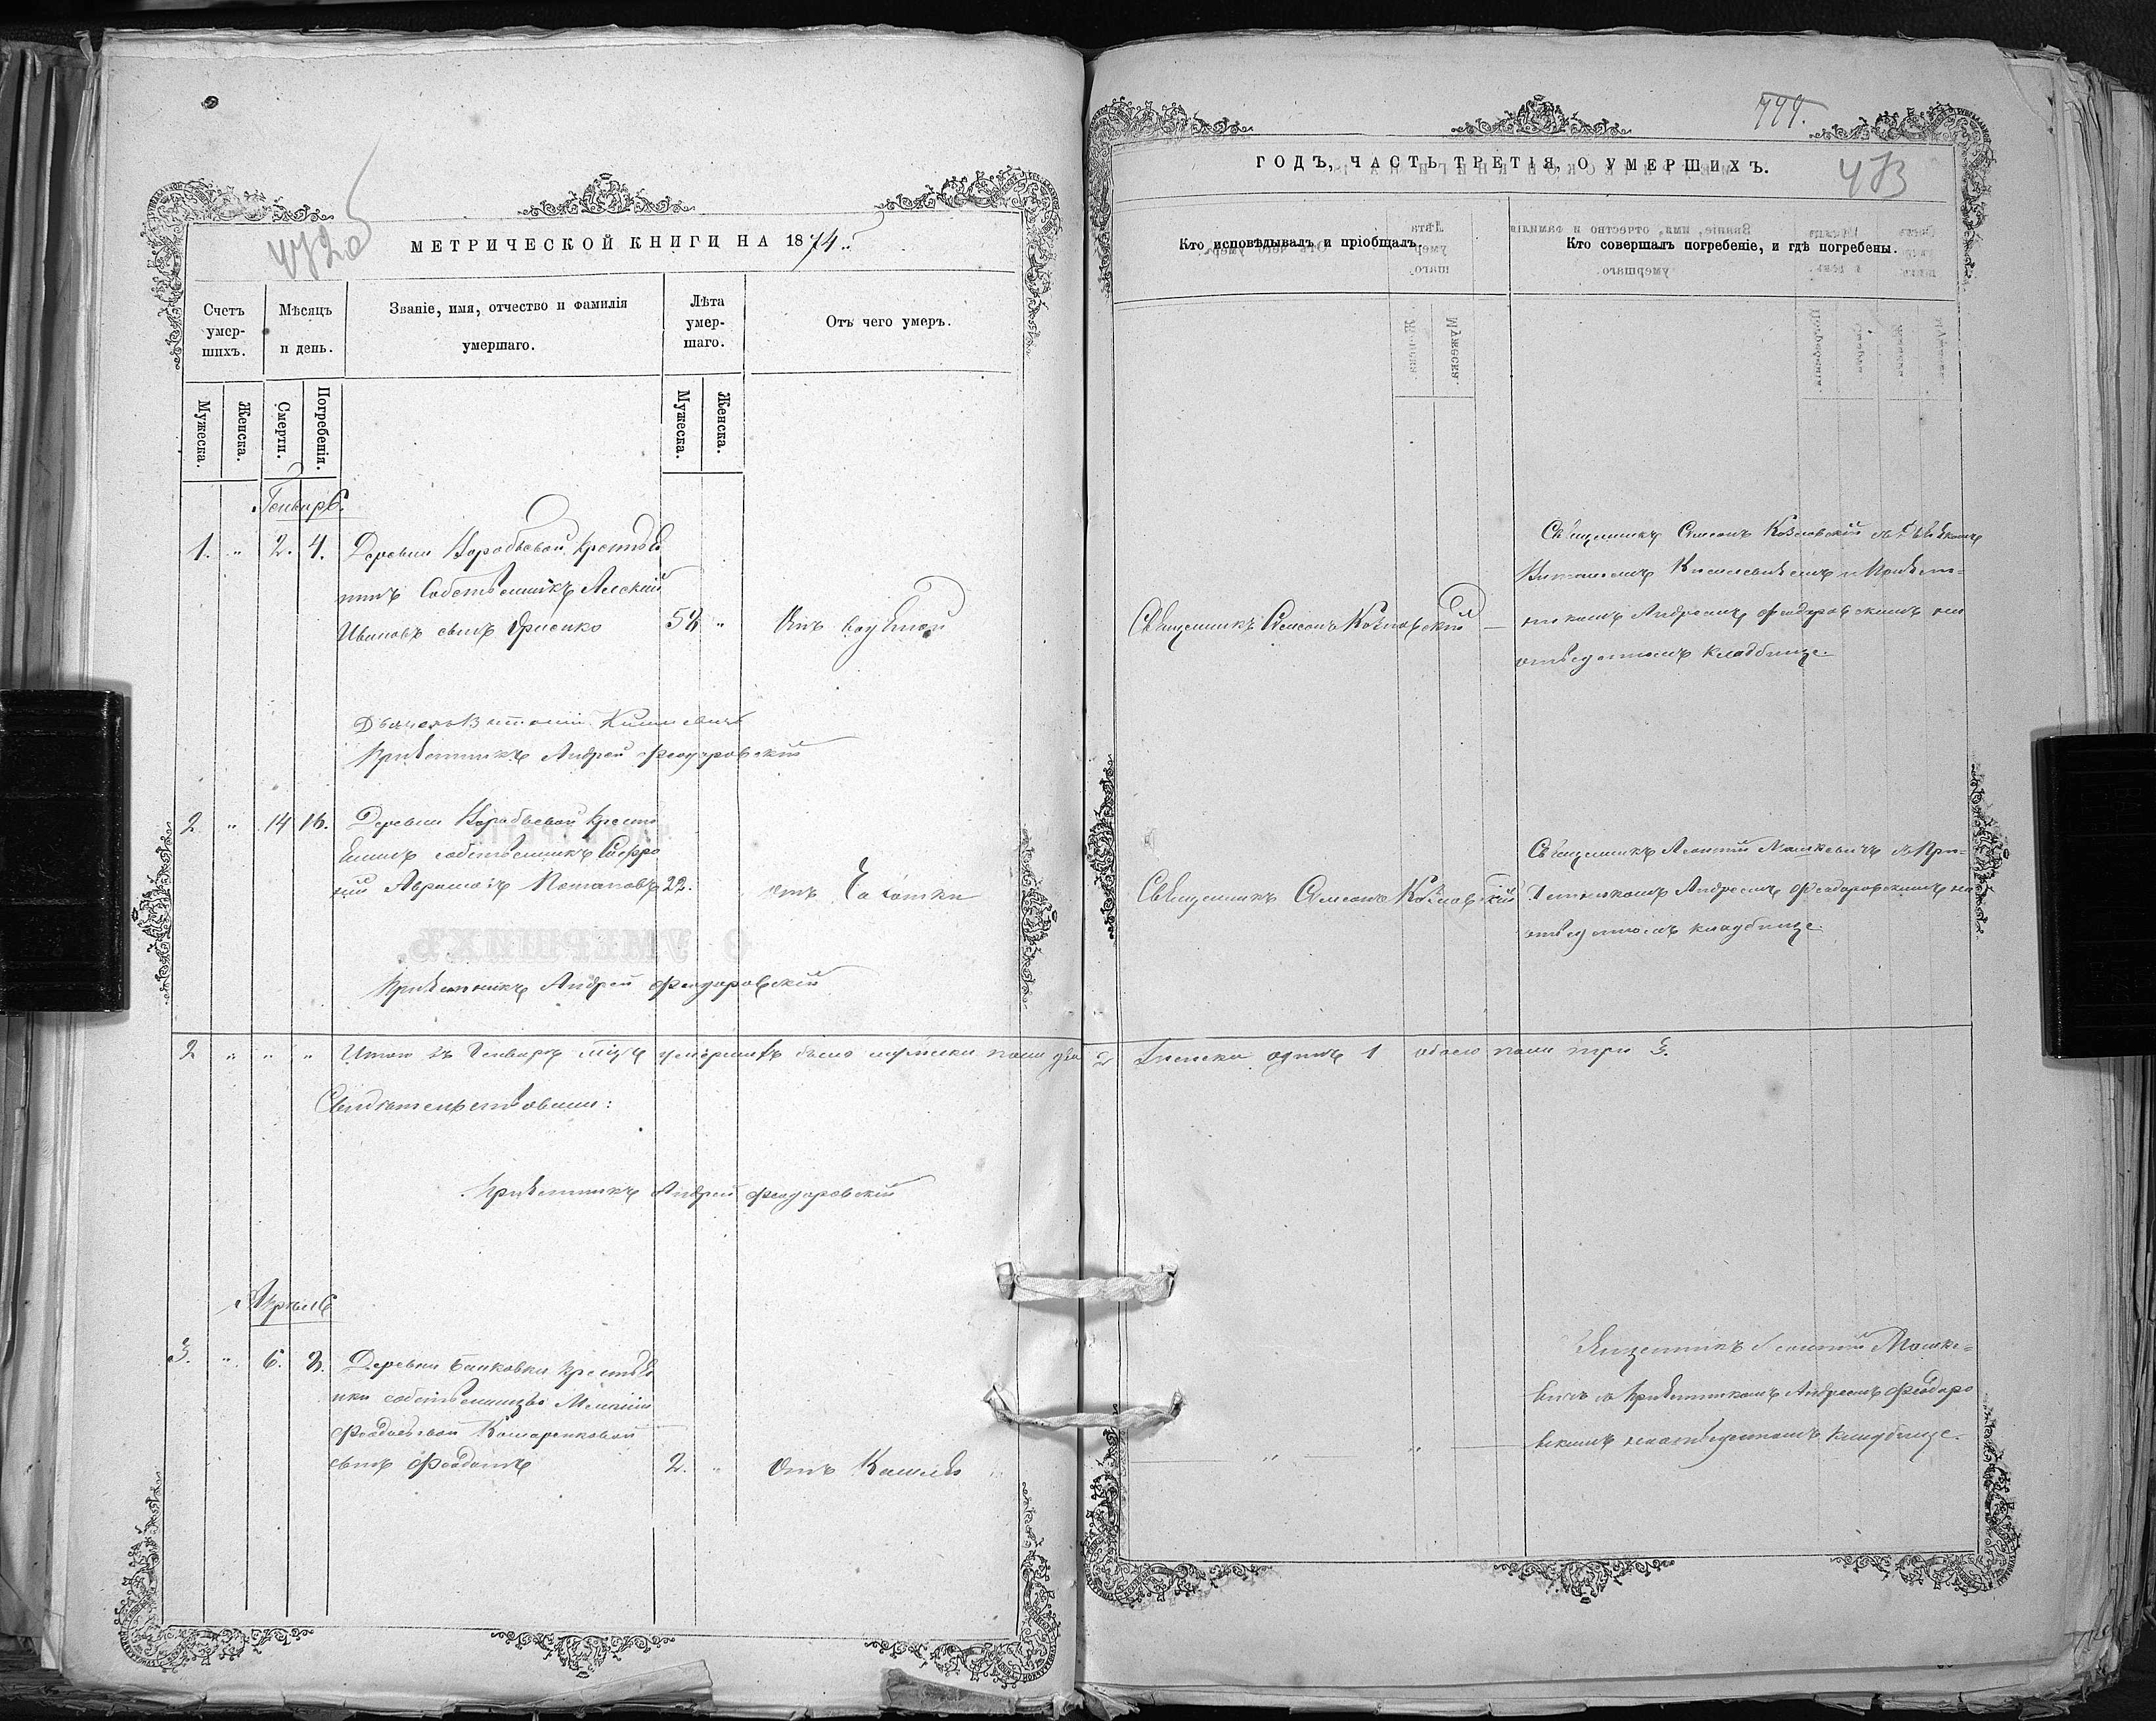 МЕТРИЧЕСКОЙ КНИГИ НА 1874.
Счетъ умершихъ.
Мѣсяцъ и день.
Званіе, имя, отчество и фамилія умершаго.
Лѣта умершаго.
Отъ чего умеръ.
Мужеска.
Женска.
Смерти.
Погребенія.
Мужеска.
Женска.
Генварь.
1. " 2. 4. Деревни Воробьевой крестья
нинъ собственникъ Алексій
Ивановъ сынъ " Отъ
Дьячекъ Виталій
Причетникъ Андрей Феодоровскій
2 " 14 16. Деревни Воробьевой крестья
нинъ собственникъ Софро
ній Авраамовъ Потаповъ 22. отъ Чахотки
Причетникъ Андрей Феодоровскій
2 " " " Итого въ Генварѣ мцѣ умершихъ было мужеска пола два
Свидѣтельствовали:
Причетникъ Андрей Феодоровскій
Апрѣль
3. " 6. 8. Деревни крестья
нки собственницы
Комаренковой
сынъ 2. " Отъ Кашля
777.
ГОДЪ, ЧАСТЬ ТРЕТІЯ, О УМЕРШИХЪ.
473
Кто исповѣдывалъ и пріобщалъ.
Кто совершалъ погребеніе, и гдѣ погребены.
Священникъ Симеонъ Козловскій
Священникъ Симеонъ Козловскій съ Дьячкомъ
Виталіемъ и Причет-
никомъ Андреемъ Феодоровскимъ на
отведенномъ кладбище.
Священникъ Симеонъ Козловскій
Священникъ Леонтій Мошкевичъ съ При-
четникомъ Андреемъ Феодоровскимъ на
отведенномъ кладбище
2 женска одинъ 1 обоего пола три 3.
" "
Священникъ Леонтій Мошке-
вичъ съ Причетникомъ Андреемъ Феодоро
вскимъ на отведенномъ кладбище.